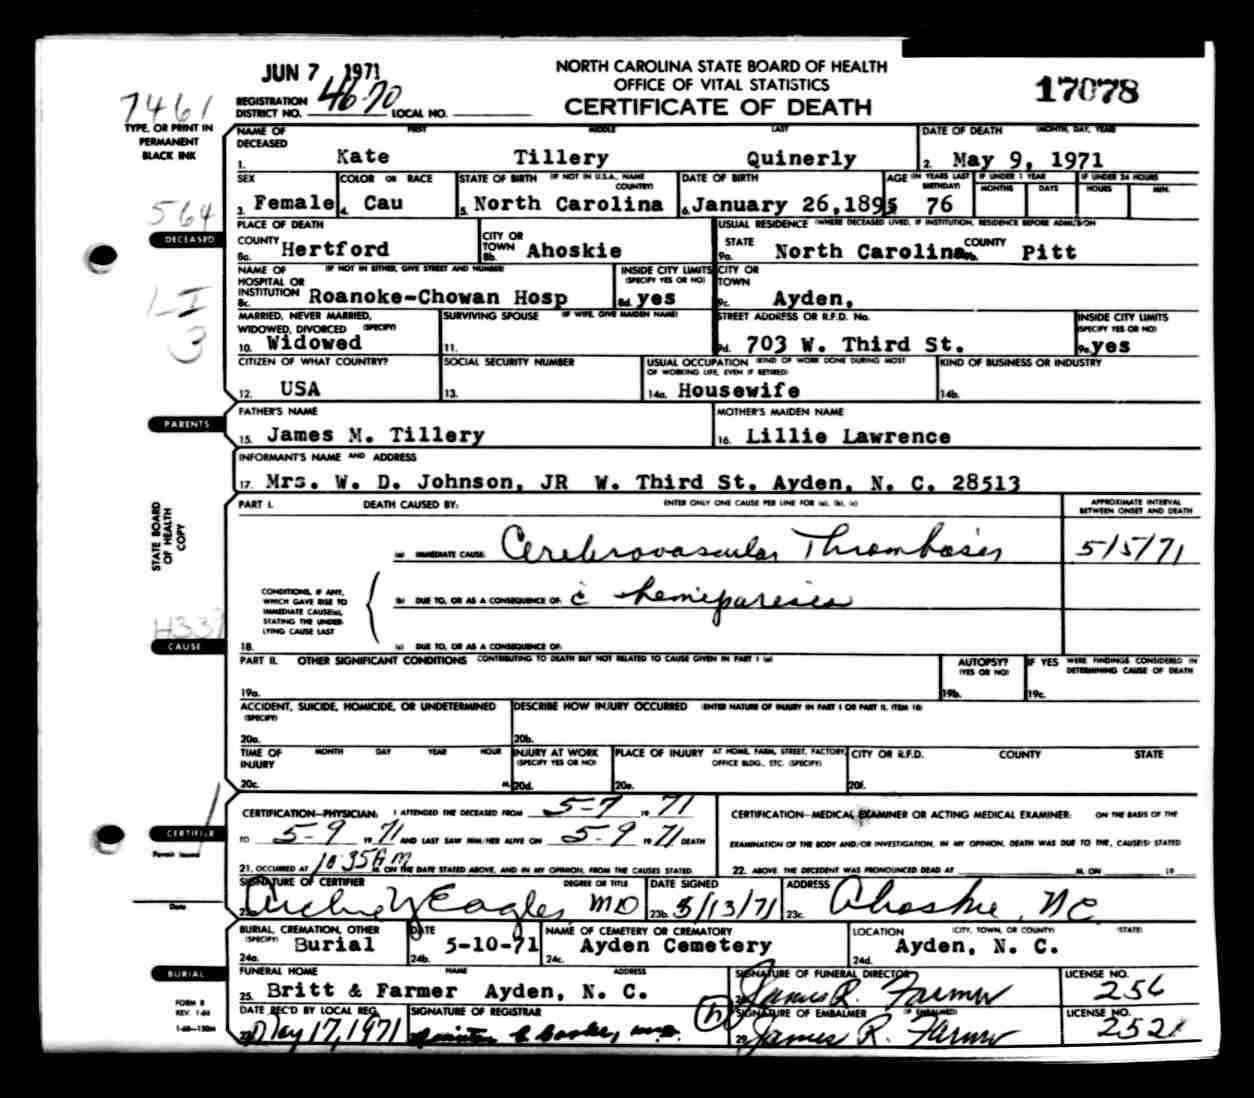 JUN 7 1971
NORTH CAROLINA STATE BOARD OF HEALTH
OFFICE OF VITAL STATISTICS
CERTIFICATE OF DEATH
17078
7461
REGISTRATION DISTRICT NO. 46-70 LOCAL NO.
TYPE, OR PRINT IN PERMANENT BLACK INK
NAME OF DECEASED FIRST MIDDLE LAST DATE OF DEATH (MONTH, DAY, YEAR)
1. Kate Tillery Quinerly 2. May 9, 1971
SEX COLOR OR RACE STATE OF BIRTH (IF NOT IN U.S.A., NAME COUNTRY) DATE OF BIRTH AGE (IN YEARS LAST BIRTHDAY) IF UNDER 1 YEAR MONTHS DAYS IF UNDER 24 HOURS HOURS MIN.
3. Female 4. Cau 5. North Carolina 6. January 26, 1895 76
564
DECEASED
PLACE OF DEATH USUAL RESIDENCE (WHERE DECEASED LIVED, IF INSTITUTION, RESIDENCE BEFORE ADMISSION
COUNTY 8a. Hertford CITY OR TOWN 8b. Ahoskie STATE 9a. North Carolina COUNTY 9b. Pitt
NAME OF HOSPITAL OR INSTITUTION (IF NOT IN EITHER, GIVE STREET AND NUMBER) 8c. Roanoke-Chowan Hosp INSIDE CITY LIMITS (SPECIFY YES OR NO) 8d. yes CITY OR TOWN 9c. Ayden,
1-I
3
MARRIED, NEVER MARRIED, WIDOWED, DIVORCED (SPECIFY) 10. Widowed SURVIVING SPOUSE (IF WIFE, GIVE MAIDEN NAME) 11. STREET ADDRESS OR R.F.D. No. 9d. 703 W. Third St. INSIDE CITY LIMITS (SPECIFY YES OR NO) 9e. yes
CITIZEN OF WHAT COUNTRY? 12. USA SOCIAL SECURITY NUMBER 13. USUAL OCCUPATION (KIND OF WORK DONE DURING MOST OF WORKING LIFE, EVEN IF RETIRED) 14a. Housewife KIND OF BUSINESS OR INDUSTRY 14b.
PARENTS
FATHER'S NAME 15. James M. Tillery MOTHER'S MAIDEN NAME 16. Lillie Lawrence
INFORMANT'S NAME AND ADDRESS
17. Mrs. W. D. Johnson, JR W. Third St. Ayden, N. C. 28513
STATE BOARD OF HEALTH COPY
PART I. DEATH CAUSED BY: ENTER ONLY ONE CAUSE PER LINE FOR (a), (b), (c) APPROXIMATE INTERVAL BETWEEN ONSET AND DEATH
(a) IMMEDIATE CAUSE Cerebrovascular Thrombosis 5/5/71
CONDITIONS, IF ANY, WHICH GAVE RISE TO IMMEDIATE CAUSE(a), STATING THE UNDERLYING CAUSE LAST
(b) DUE TO, OR AS A CONSEQUENCE OF: c̄ hemiparesis
H337
CAUSE
18. (c) DUE TO, OR AS A CONSEQUENCE OF:
PART II. OTHER SIGNIFICANT CONDITIONS CONTRIBUTING TO DEATH BUT NOT RELATED TO CAUSE GIVEN IN PART I (a) AUTOPSY? (YES OR NO) IF YES WERE FINDINGS CONSIDERED IN DETERMINING CAUSE OF DEATH
19a. 19b. 19c.
ACCIDENT, SUICIDE, HOMICIDE, OR UNDETERMINED (SPECIFY) DESCRIBE HOW INJURY OCCURRED (ENTER NATURE OF INJURY IN PART I OR PART II, ITEM 18)
20a. 20b.
TIME OF INJURY MONTH DAY YEAR HOUR INJURY AT WORK (SPECIFY YES OR NO) PLACE OF INJURY AT HOME, FARM, STREET, FACTORY, OFFICE BLDG., ETC. (SPECIFY) CITY OR R.F.D. COUNTY STATE
20c. M. 20d. 20e. 20f.
CERTIFIER
Permit Issued
Date
CERTIFICATION—PHYSICIAN: I ATTENDED THE DECEASED FROM 5-7 19 71
TO 5-9 19 71 AND LAST SAW HIM/HER ALIVE ON 5-9 19 71 DEATH
21. OCCURRED AT 10 35 A M. ON THE DATE STATED ABOVE, AND IN MY OPINION, FROM THE CAUSES STATED.
CERTIFICATION—MEDICAL EXAMINER OR ACTING MEDICAL EXAMINER: ON THE BASIS OF THE
EXAMINATION OF THE BODY AND/OR INVESTIGATION, IN MY OPINION, DEATH WAS DUE TO THE, CAUSE(S) STATED
22. ABOVE. THE DECEDENT WAS PRONOUNCED DEAD AT M. ON 19
SIGNATURE OF CERTIFIER DEGREE OR TITLE DATE SIGNED ADDRESS
Archie Y Eagles MD 23b. 5/13/71 23c. Ahoskie, NC
BURIAL, CREMATION, OTHER (SPECIFY) 24a. Burial DATE 24b. 5-10-71 NAME OF CEMETERY OR CREMATORY 24c. Ayden Cemetery LOCATION (CITY, TOWN, OR COUNTY) (STATE) 24d. Ayden, N. C.
BURIAL
FUNERAL HOME NAME ADDRESS SIGNATURE OF FUNERAL DIRECTOR LICENSE NO.
25. Britt & Farmer Ayden, N. C. James R. Farmer 256
FORM 8
REV. 1-68
1-68—150M
DATE REC'D BY LOCAL REG. SIGNATURE OF REGISTRAR SIGNATURE OF EMBALMER (IF EMBALMED) LICENSE NO.
May 17, 1971 h James R. Farmer 252